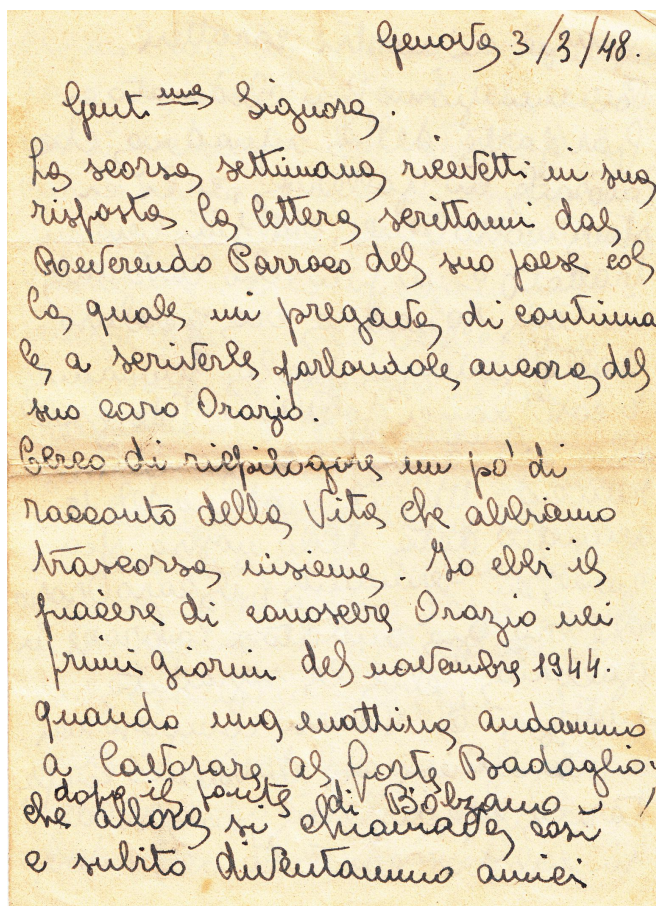 Genova 3/3/48.
Gent.ma Signora.
La scorsa settimana ricevetti in sua
risposta la lettera scrittami dal
Reverendo Parroco del suo paese col
la quale mi pregava di continua
re a scriverle parlandole ancora del
suo caro Orazio.
Cerco di riepilogare un po' di
racconto della Vita che abbiamo
trascorsa insieme. Io ebbi il
piacere di conoscere Orazio nei
primi giorni del novembre 1944.
quando una mattina andammo
a lavorare al forte Badaglio
dopo il ponte di Bolzano
che allora si chiamava così
e subito diventammo amici